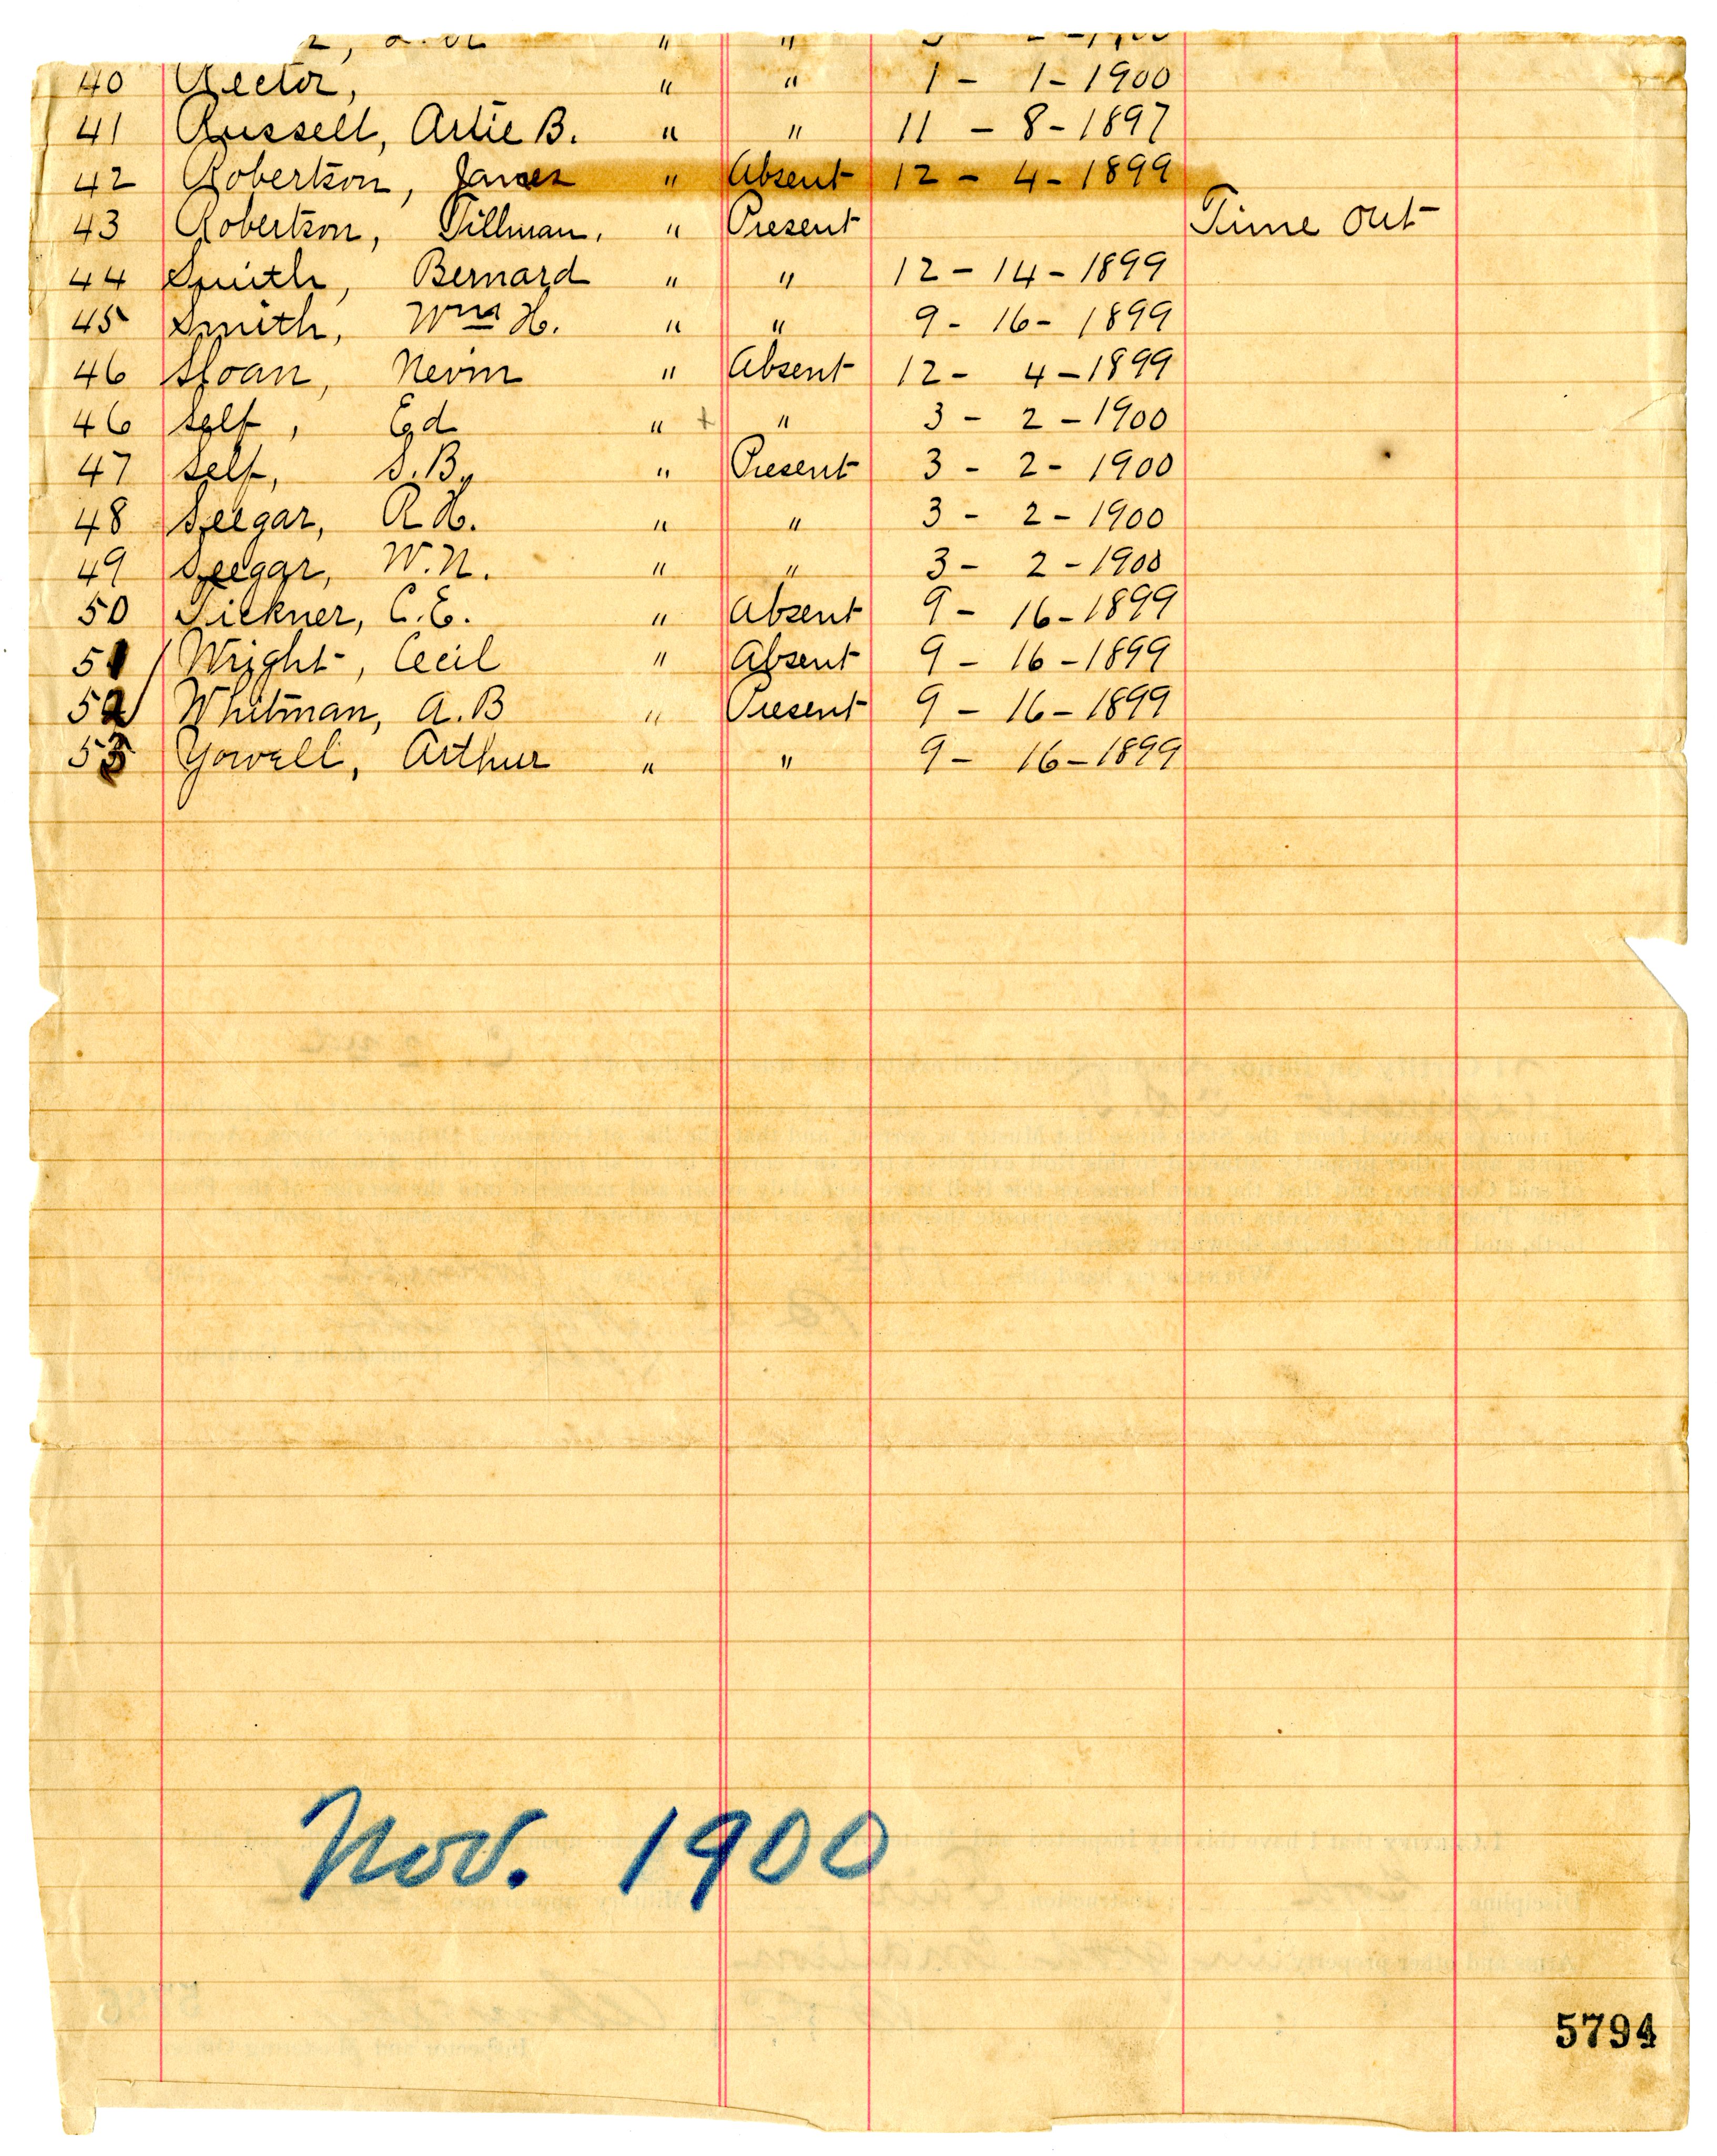 40 Rector, " " 1 - 1 - 1900
41 Russell, Artie B. " " 11 - 8 - 1897
42 Robertson, James " Absent 12 - 4 - 1899
43 Robertson, Tillman, " Present Time Out
44 Smith, Bernard " " 12 - 14 - 1899
45 Smith, Wm H. " " 9 - 16 - 1899
46 Sloan, Nevin " Absent 12 - 4 - 1899
46 Self, Ed " + " 3 - 2 - 1900
47 Self, S.B. " Present 3 - 2 - 1900
48 Seegar, R.H. " " 3 - 2 - 1900
49 Seegar, W.N. " " 3 - 2 - 1900
50 Tickner, C.E. " Absent 9 - 16 - 1899
51 Wright, Cecil " Absent 9 - 16 - 1899
52 Whitman, A.B " Present 9 - 16 - 1899
53 Yowell, Arthur " " 9 - 16 - 1899
Nov. 1900
5794